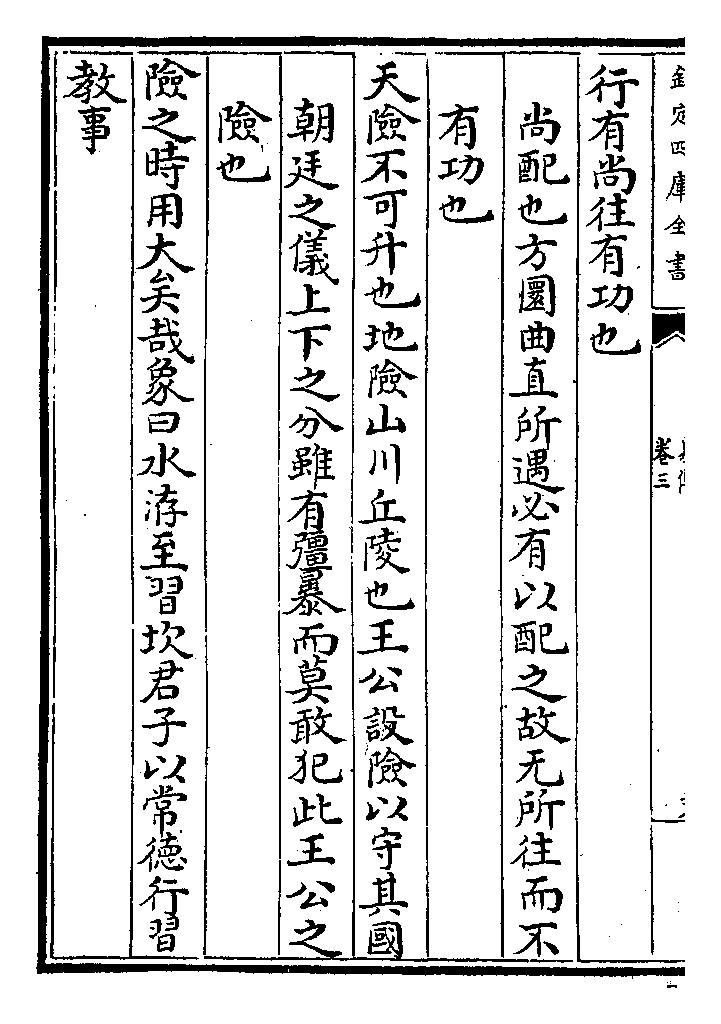 欽定四庫全書
卷三
行有尚往有功也
尚配也方圜曲直所遇必有以配之故无所往而不
有功也
天險不可升也地險山川丘陵也王公設險以守其國
朝廷之儀上下之分雖有彊暴而莫敢犯此王公之
險也
險之時用大矣哉象曰水洊至習坎君子以常德行習
教事